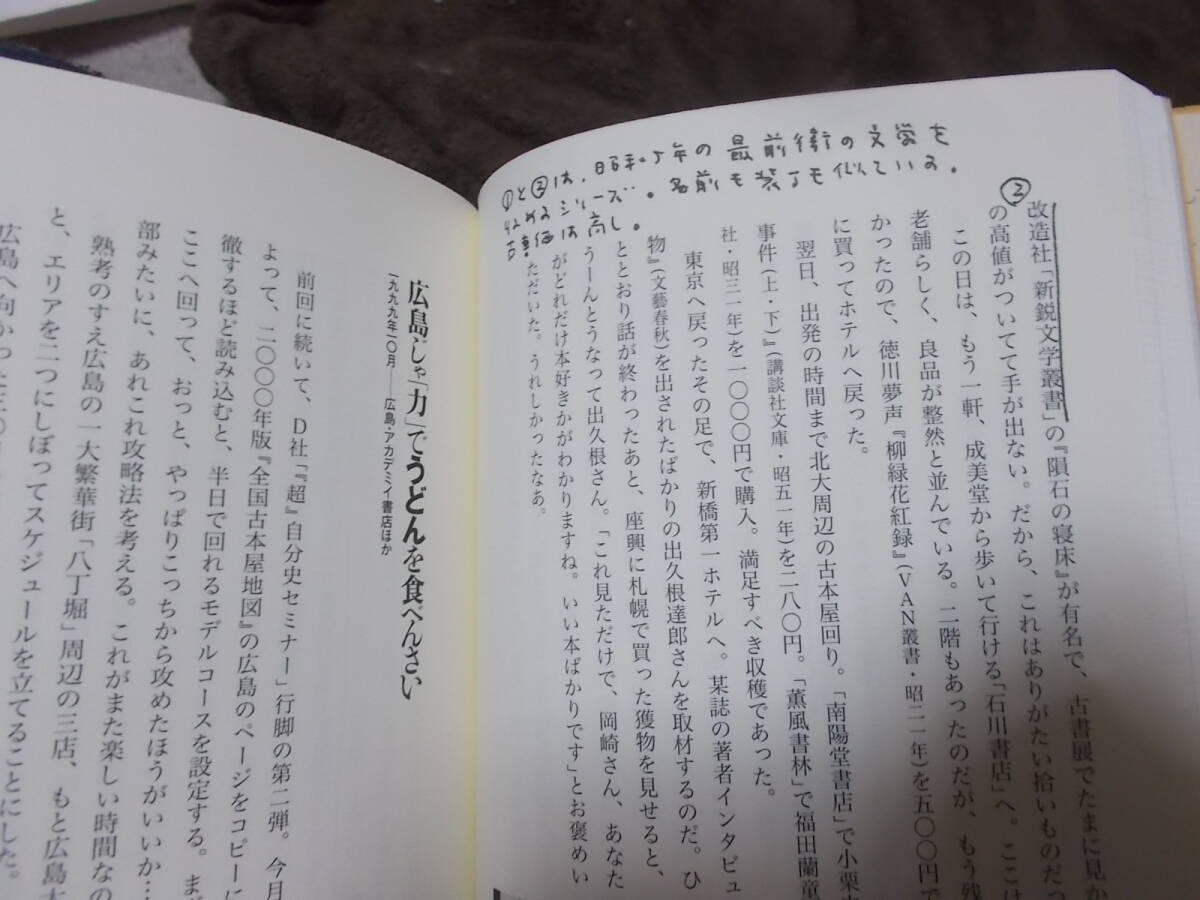 ①と②は、昭和5年の最前衛の文学を
収めるシリーズ。名前も装丁も似ている。
古書価は高し。
②
改造社「新鋭文学叢書」の『隕石の寝床』が有名で、古書展でたまに見か
の高値がついてて手が出ない。だから、これはありがたい拾いものだっ
この日は、もう一軒、成美堂から歩いて行ける「石川書店」へ。ここは
老舗らしく、良品が整然と並んでいる。二階もあったのだが、もう残
かったので、徳川夢声『柳緑花紅録』(VAN叢書・昭二一年)を五〇〇円で
に買ってホテルへ戻った。
翌日、出発の時間まで北大周辺の古本屋回り。「南陽堂書店」で小栗
事件(上・下)』(講談社文庫・昭五一年)を二八〇円。「薫風書林」で福田蘭童
社・昭三一年)を一〇〇〇円で購入。満足すべき収穫であった。
東京へ戻ったその足で、新橋第一ホテルへ。某誌の著者インタビュ
物』(文藝春秋)を出されたばかりの出久根達郎さんを取材するのだ。ひ
ととおり話が終わったあと、座興に札幌で買った獲物を見せると、
うーんとうなって出久根さん。「これ見ただけで、岡崎さん、あなた
がどれだけ本好きかがわかりますね。いい本ばかりです」とお褒めい
ただいた。うれしかったなあ。
広島じゃ「力」でうどんを食べんさい
一九九九年一〇月──広島・アカデミイ書店ほか
前回に続いて、D社「『超』自分史セミナー」行脚の第二弾。今月
よって、二〇〇〇年版『全国古本屋地図』の広島のページをコピーに
徹するほど読み込むと、半日で回れるモデルコースを設定する。ま
ここへ回って、おっと、やっぱりこっちから攻めたほうがいいか…
部みたいに、あれこれ攻略法を考える。これがまた楽しい時間なの
熟考のすえ広島の一大繁華街「八丁堀」周辺の三店、もと広島大
と、エリアを二つにしぼってスケジュールを立てることにした。
広島へ向かった